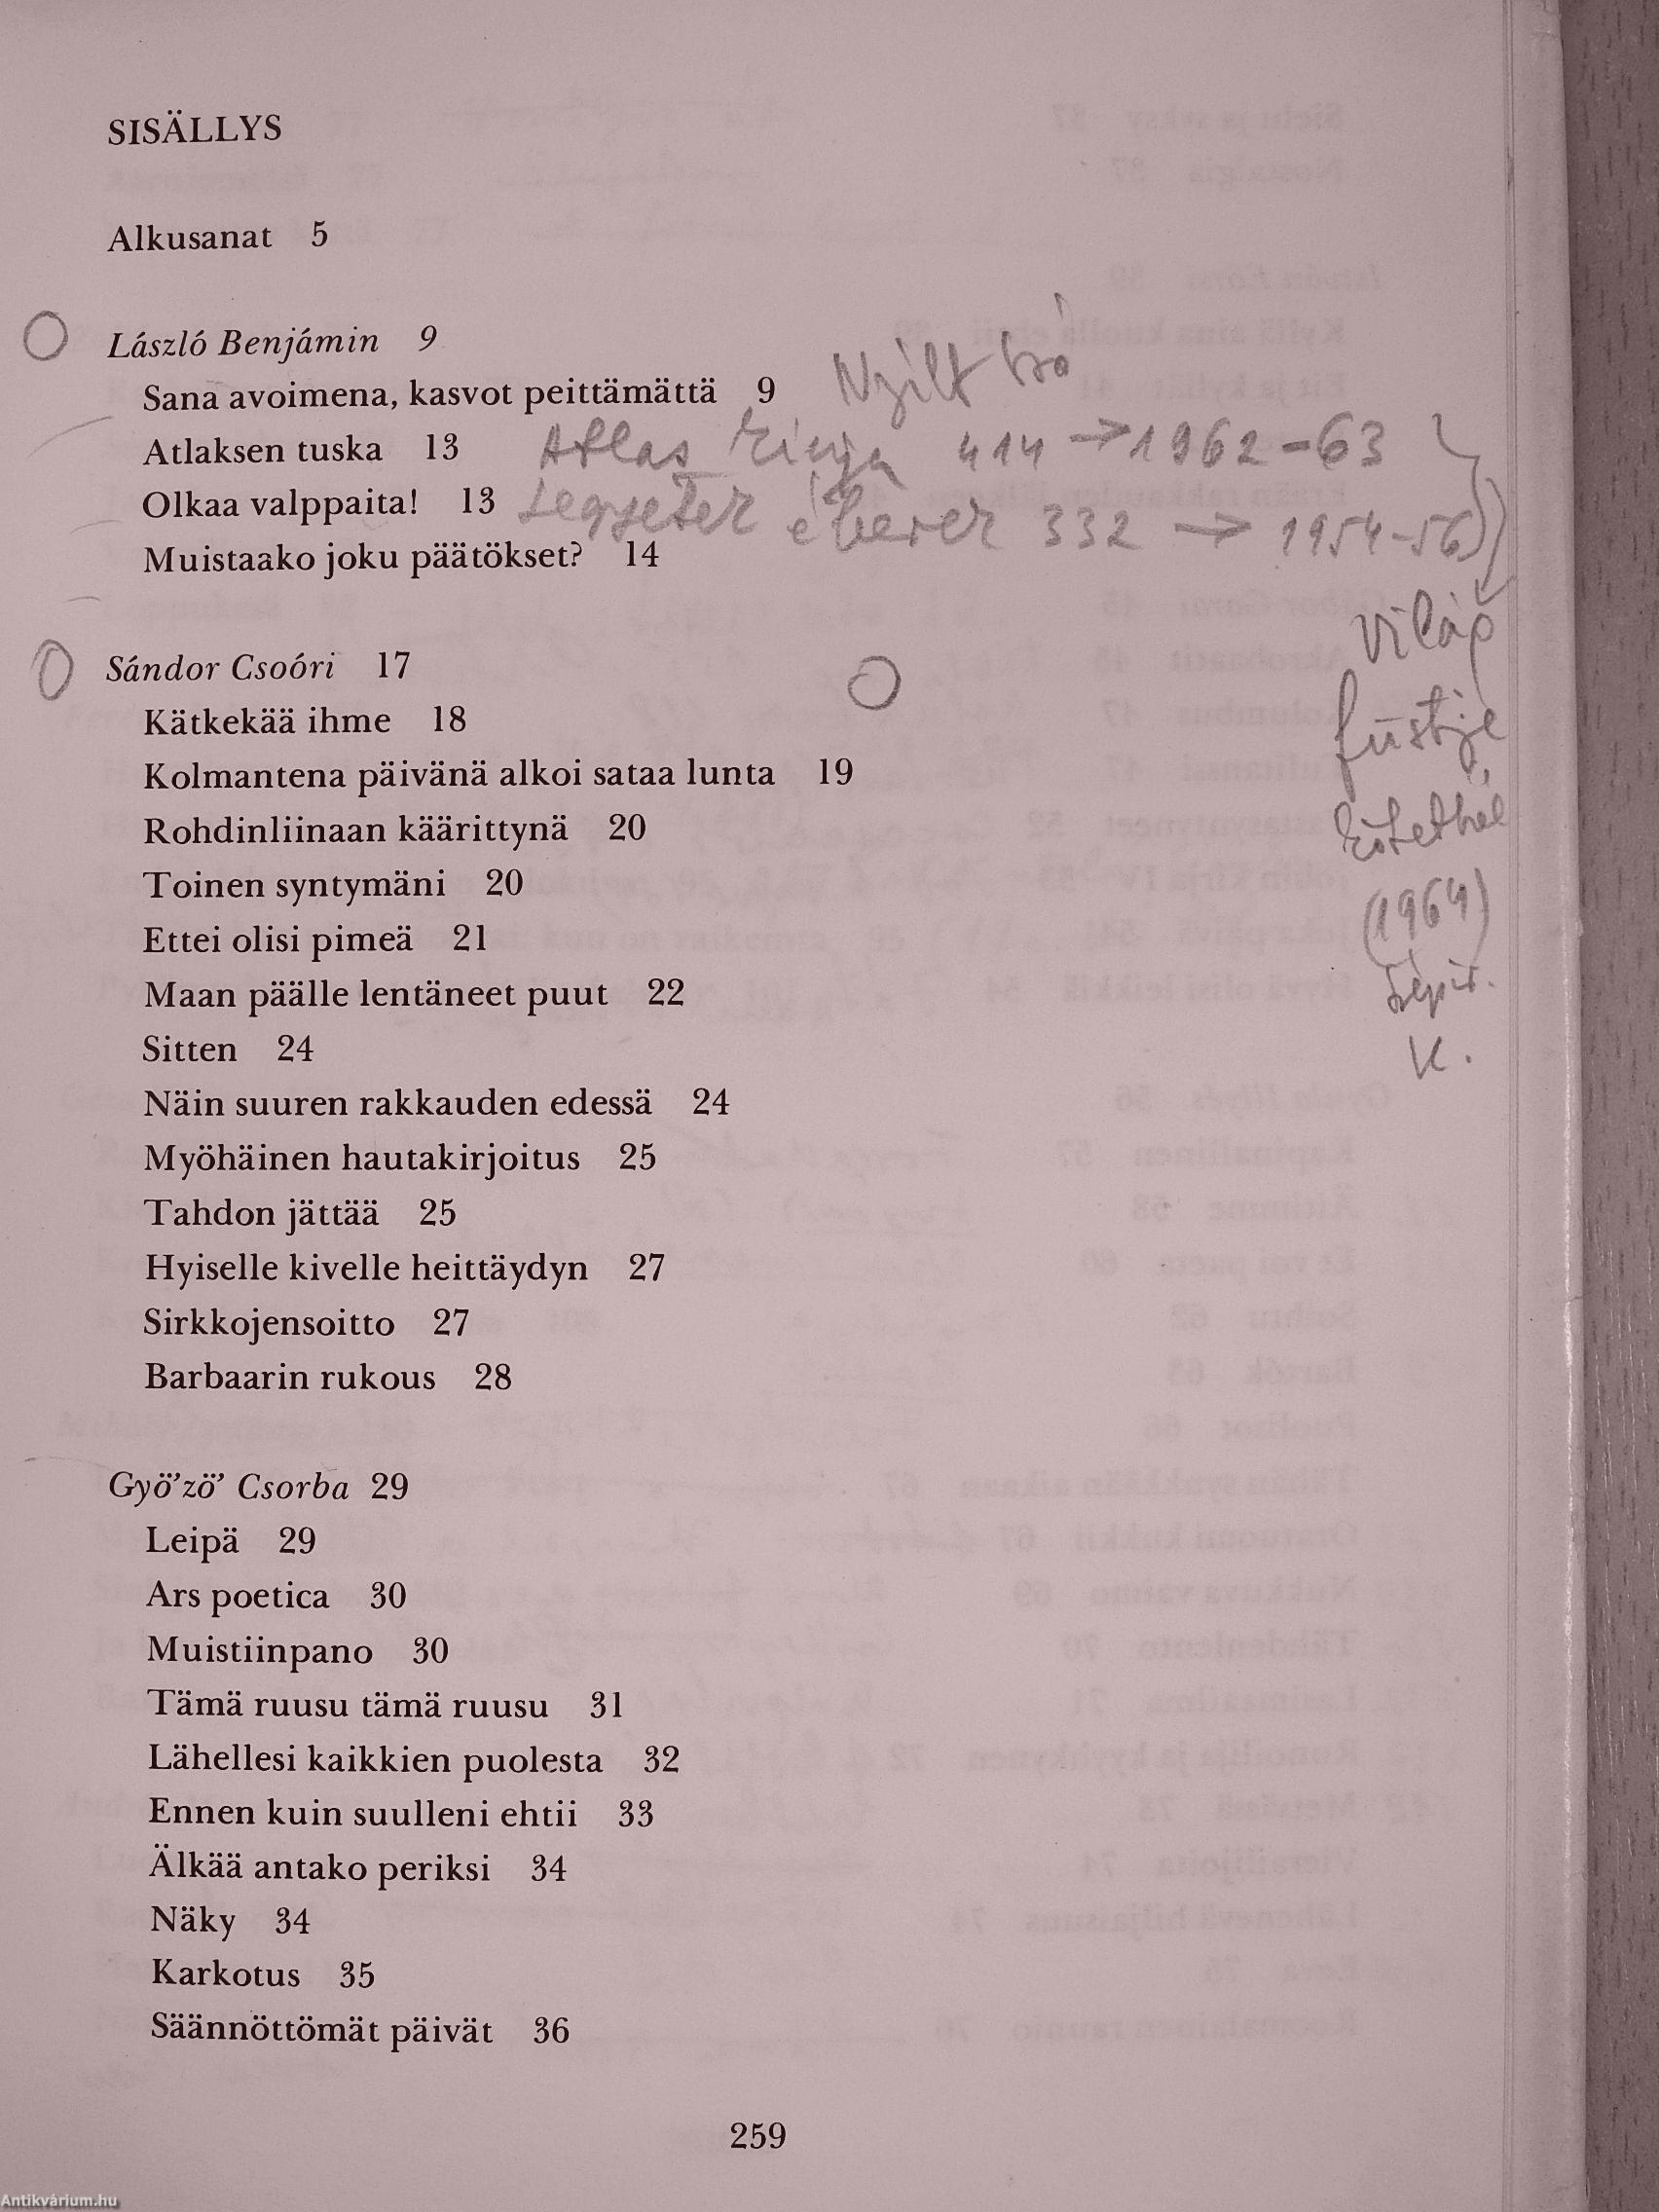 SISÄLLYS
Alkusanat 5
László Benjámin 9
Sana avoimena, kasvot peittämättä 9 Nyílt szó
Atlaksen tuska 13 Atlas kínja 414 → 1962-63
Olkaa valppaita! 13 Legyetek éberek 332 → 1954-56
Muistaako joku päätökset? 14
Világ
füstje
kötetből
(1964)
Szépir.
K.
Sándor Csoóri 17
Kätkekää ihme 18
Kolmantena päivänä alkoi sataa lunta 19
Rohdinliinaan käärittynä 20
Toinen syntymäni 20
Ettei olisi pimeä 21
Maan päälle lentäneet puut 22
Sitten 24
Näin suuren rakkauden edessä 24
Myöhäinen hautakirjoitus 25
Tahdon jättää 25
Hyiselle kivelle heittäydyn 27
Sirkkojensoitto 27
Barbaarin rukous 28
Győző Csorba 29
Leipä 29
Ars poetica 30
Muistiinpano 30
Tämä ruusu tämä ruusu 31
Lähellesi kaikkien puolesta 32
Ennen kuin suulleni ehtii 33
Älkää antako periksi 34
Näky 34
Karkotus 35
Säännöttömät päivät 36
259
Antikvárium.hu